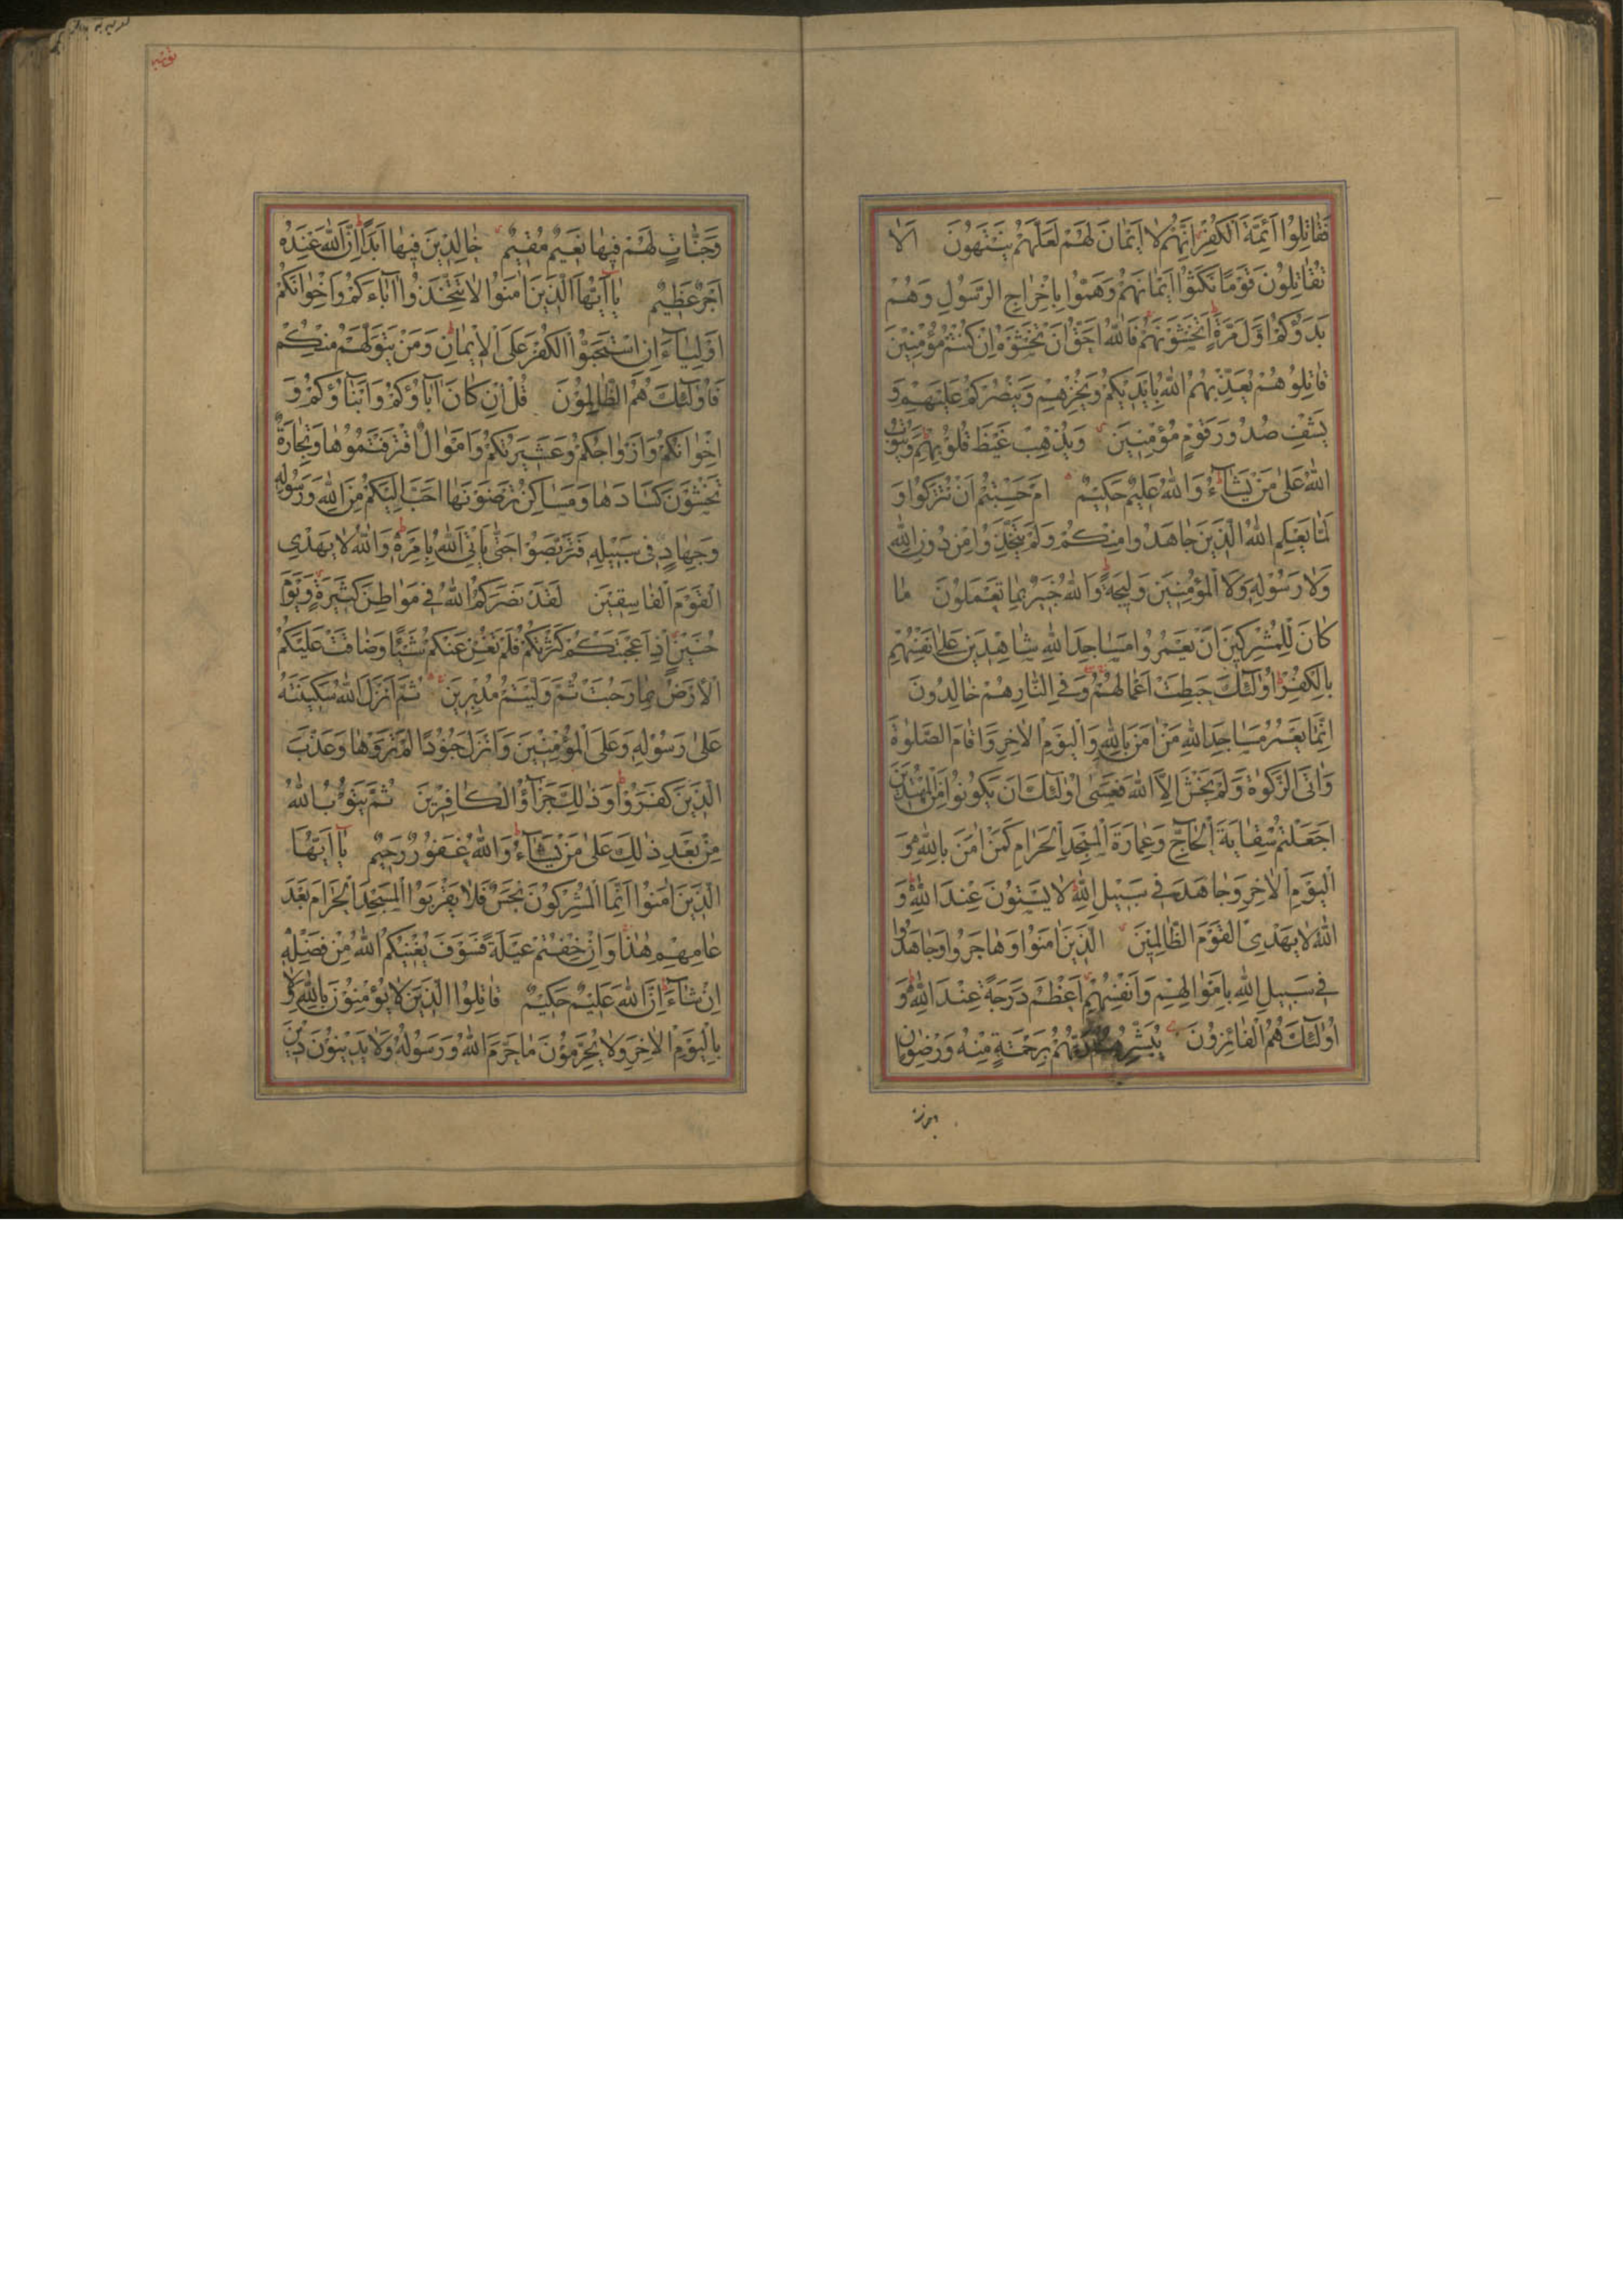 فَقَاتِلُوا اَئِمَّةَ الْكُفْرِ اِنَّهُمْ لَا اَيْمَانَ لَهُمْ لَعَلَّهُمْ يَنْتَهُونَ اَلَا
تُقَاتِلُونَ قَوْمًا نَكَثُوا اَيْمَانَهُمْ وَهَمُّوا بِاِخْرَاجِ الرَّسُولِ وَهُمْ
بَدَؤُكُمْ اَوَّلَ مَرَّةٍ اَتَخْشَوْنَهُمْ فَاللّٰهُ اَحَقُّ اَنْ تَخْشَوْهُ اِنْ كُنْتُمْ مُؤْمِنِينَ
قَاتِلُوهُمْ يُعَذِّبْهُمُ اللّٰهُ بِاَيْدِيكُمْ وَيُخْزِهِمْ وَيَنْصُرْكُمْ عَلَيْهِمْ وَ
يَشْفِ صُدُورَ قَوْمٍ مُؤْمِنِينَ وَيُذْهِبْ غَيْظَ قُلُوبِهِمْ وَيَتُوبُ
اللّٰهُ عَلٰى مَنْ يَشَآءُ وَاللّٰهُ عَلِيمٌ حَكِيمٌ اَمْ حَسِبْتُمْ اَنْ تُتْرَكُوا وَ
لَمَّا يَعْلَمِ اللّٰهُ الَّذِينَ جَاهَدُوا مِنْكُمْ وَلَمْ يَتَّخِذُوا مِنْ دُونِ اللّٰهِ
وَلَا رَسُولِهِ وَلَا الْمُؤْمِنِينَ وَلِيجَةً وَاللّٰهُ خَبِيرٌ بِمَا تَعْمَلُونَ مَا
كَانَ لِلْمُشْرِكِينَ اَنْ يَعْمُرُوا مَسَاجِدَ اللّٰهِ شَاهِدِينَ عَلٰى اَنْفُسِهِمْ
بِالْكُفْرِ اُولٰئِكَ حَبِطَتْ اَعْمَالُهُمْ وَفِي النَّارِ هُمْ خَالِدُونَ
اِنَّمَا يَعْمُرُ مَسَاجِدَ اللّٰهِ مَنْ اٰمَنَ بِاللّٰهِ وَالْيَوْمِ الْاٰخِرِ وَاَقَامَ الصَّلٰوةَ
وَاٰتَى الزَّكٰوةَ وَلَمْ يَخْشَ اِلَّا اللّٰهَ فَعَسٰى اُولٰئِكَ اَنْ يَكُونُوا مِنَ الْمُهْتَدِينَ
اَجَعَلْتُمْ سِقَايَةَ الْحَآجِّ وَعِمَارَةَ الْمَسْجِدِ الْحَرَامِ كَمَنْ اٰمَنَ بِاللّٰهِ وَ
الْيَوْمِ الْاٰخِرِ وَجَاهَدَ فِي سَبِيلِ اللّٰهِ لَا يَسْتَوُنَ عِنْدَ اللّٰهِ وَ
اللّٰهُ لَا يَهْدِي الْقَوْمَ الظَّالِمِينَ الَّذِينَ اٰمَنُوا وَهَاجَرُوا وَجَاهَدُوا
فِي سَبِيلِ اللّٰهِ بِاَمْوَالِهِمْ وَاَنْفُسِهِمْ اَعْظَمُ دَرَجَةً عِنْدَ اللّٰهِ وَ
اُولٰئِكَ هُمُ الْفَائِزُونَ يُبَشِّرُهُمْ رَبُّهُمْ بِرَحْمَةٍ مِنْهُ وَرِضْوَانٍ
وَجَنَّاتٍ لَهُمْ فِيهَا نَعِيمٌ مُقِيمٌ خَالِدِينَ فِيهَا اَبَدًا اِنَّ اللّٰهَ عِنْدَهُ
اَجْرٌ عَظِيمٌ يَا اَيُّهَا الَّذِينَ اٰمَنُوا لَا تَتَّخِذُوا اٰبَاءَكُمْ وَاِخْوَانَكُمْ
اَوْلِيَآءَ اِنِ اسْتَحَبُّوا الْكُفْرَ عَلَى الْاِيمَانِ وَمَنْ يَتَوَلَّهُمْ مِنْكُمْ
فَاُولٰئِكَ هُمُ الظَّالِمُونَ قُلْ اِنْ كَانَ اٰبَاؤُكُمْ وَاَبْنَاؤُكُمْ وَ
اِخْوَانُكُمْ وَاَزْوَاجُكُمْ وَعَشِيرَتُكُمْ وَاَمْوَالٌ اقْتَرَفْتُمُوهَا وَتِجَارَةٌ
تَخْشَوْنَ كَسَادَهَا وَمَسَاكِنُ تَرْضَوْنَهَا اَحَبَّ اِلَيْكُمْ مِنَ اللّٰهِ وَرَسُولِهِ
وَجِهَادٍ فِي سَبِيلِهِ فَتَرَبَّصُوا حَتّٰى يَاْتِيَ اللّٰهُ بِاَمْرِهِ وَاللّٰهُ لَا يَهْدِي
الْقَوْمَ الْفَاسِقِينَ لَقَدْ نَصَرَكُمُ اللّٰهُ فِي مَوَاطِنَ كَثِيرَةٍ وَيَوْمَ
حُنَيْنٍ اِذْ اَعْجَبَتْكُمْ كَثْرَتُكُمْ فَلَمْ تُغْنِ عَنْكُمْ شَيْئًا وَضَاقَتْ عَلَيْكُمُ
الْاَرْضُ بِمَا رَحُبَتْ ثُمَّ وَلَّيْتُمْ مُدْبِرِينَ ثُمَّ اَنْزَلَ اللّٰهُ سَكِينَتَهُ
عَلٰى رَسُولِهِ وَعَلَى الْمُؤْمِنِينَ وَاَنْزَلَ جُنُودًا لَمْ تَرَوْهَا وَعَذَّبَ
الَّذِينَ كَفَرُوا وَذٰلِكَ جَزَآؤُ الْكَافِرِينَ ثُمَّ يَتُوبُ اللّٰهُ
مِنْ بَعْدِ ذٰلِكَ عَلٰى مَنْ يَشَآءُ وَاللّٰهُ غَفُورٌ رَحِيمٌ يَا اَيُّهَا
الَّذِينَ اٰمَنُوا اِنَّمَا الْمُشْرِكُونَ نَجَسٌ فَلَا يَقْرَبُوا الْمَسْجِدَ الْحَرَامَ بَعْدَ
عَامِهِمْ هٰذَا وَاِنْ خِفْتُمْ عَيْلَةً فَسَوْفَ يُغْنِيكُمُ اللّٰهُ مِنْ فَضْلِهِ
اِنْ شَآءَ اِنَّ اللّٰهَ عَلِيمٌ حَكِيمٌ قَاتِلُوا الَّذِينَ لَا يُؤْمِنُونَ بِاللّٰهِ وَلَا
بِالْيَوْمِ الْاٰخِرِ وَلَا يُحَرِّمُونَ مَا حَرَّمَ اللّٰهُ وَرَسُولُهُ وَلَا يَدِينُونَ دِينَ